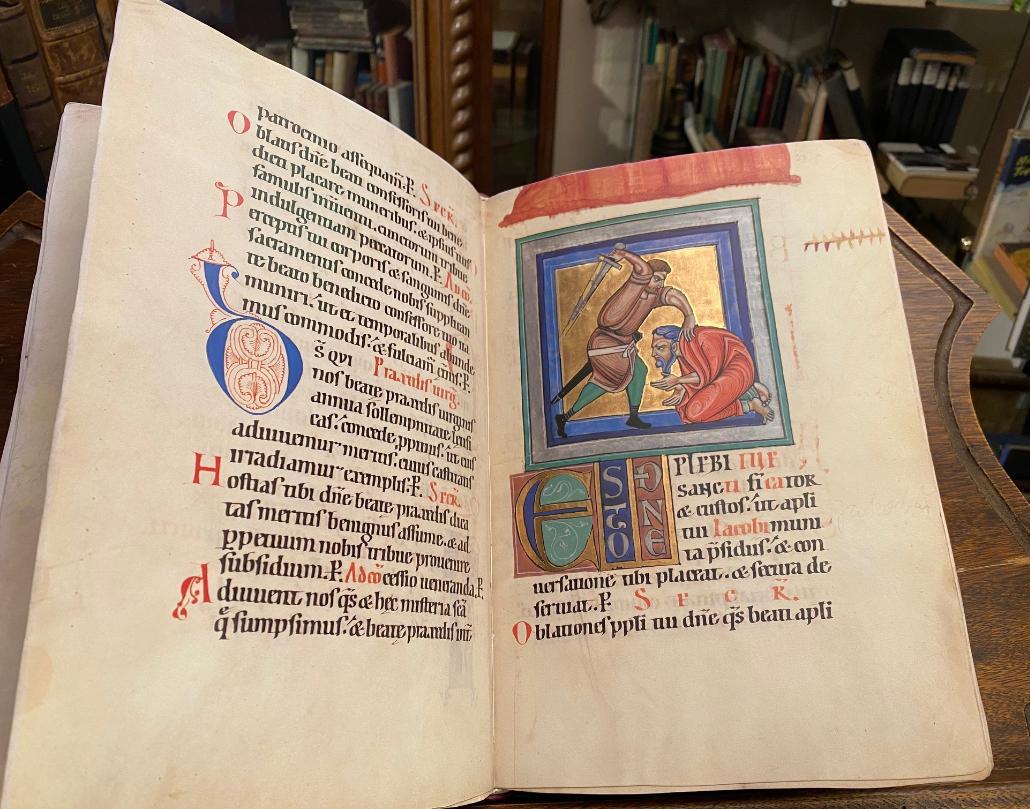 patrocinio assequam̄.P. Secr̄.
Oblatis dn̄e beati confessoris tui bene
dicti placare muneribus. & ipsius nos
famulis tuis cunctorum tribue
indulgentiam peccatorum.P. Ad cō.
Perceptis tui corporis & sanguinis dn̄e
sacramentis concede nobis supplican
te beato benedicto confessore tuo ita
muniri. ut et temporalibus abunde
mus commodis. & fulciam̄
D̄s QUI Praxedis uirg̃.
nos beatę praxedis uirginis
annua sollempnitate
cas. concede, ut cuius
adiuuemur meritis, cuius castitatis
irradiamur exemplis.P. Secr̄.
Hostias tibi dn̄e beatę praxedis dica
tas meritis benignus assume. & ad
ppetuum nobis tribue prouenire
subsidium.P. Ad cō cessio ueneranda.P.
Adiuuent nos q̄s & hęc misteria sc̄a
q̄ sumpsimus. & beatę praxedis int̄
ESTO DNE PLEBI TUE
SANCTIFICATOR
& custos. ut apli
tui Iacobi muni
ta p̄sidiis. & con
uersatione tibi placeat. & secura de
seruiat.P. SECR̄.
Oblationes ppli tui dn̄e q̄s beati apli